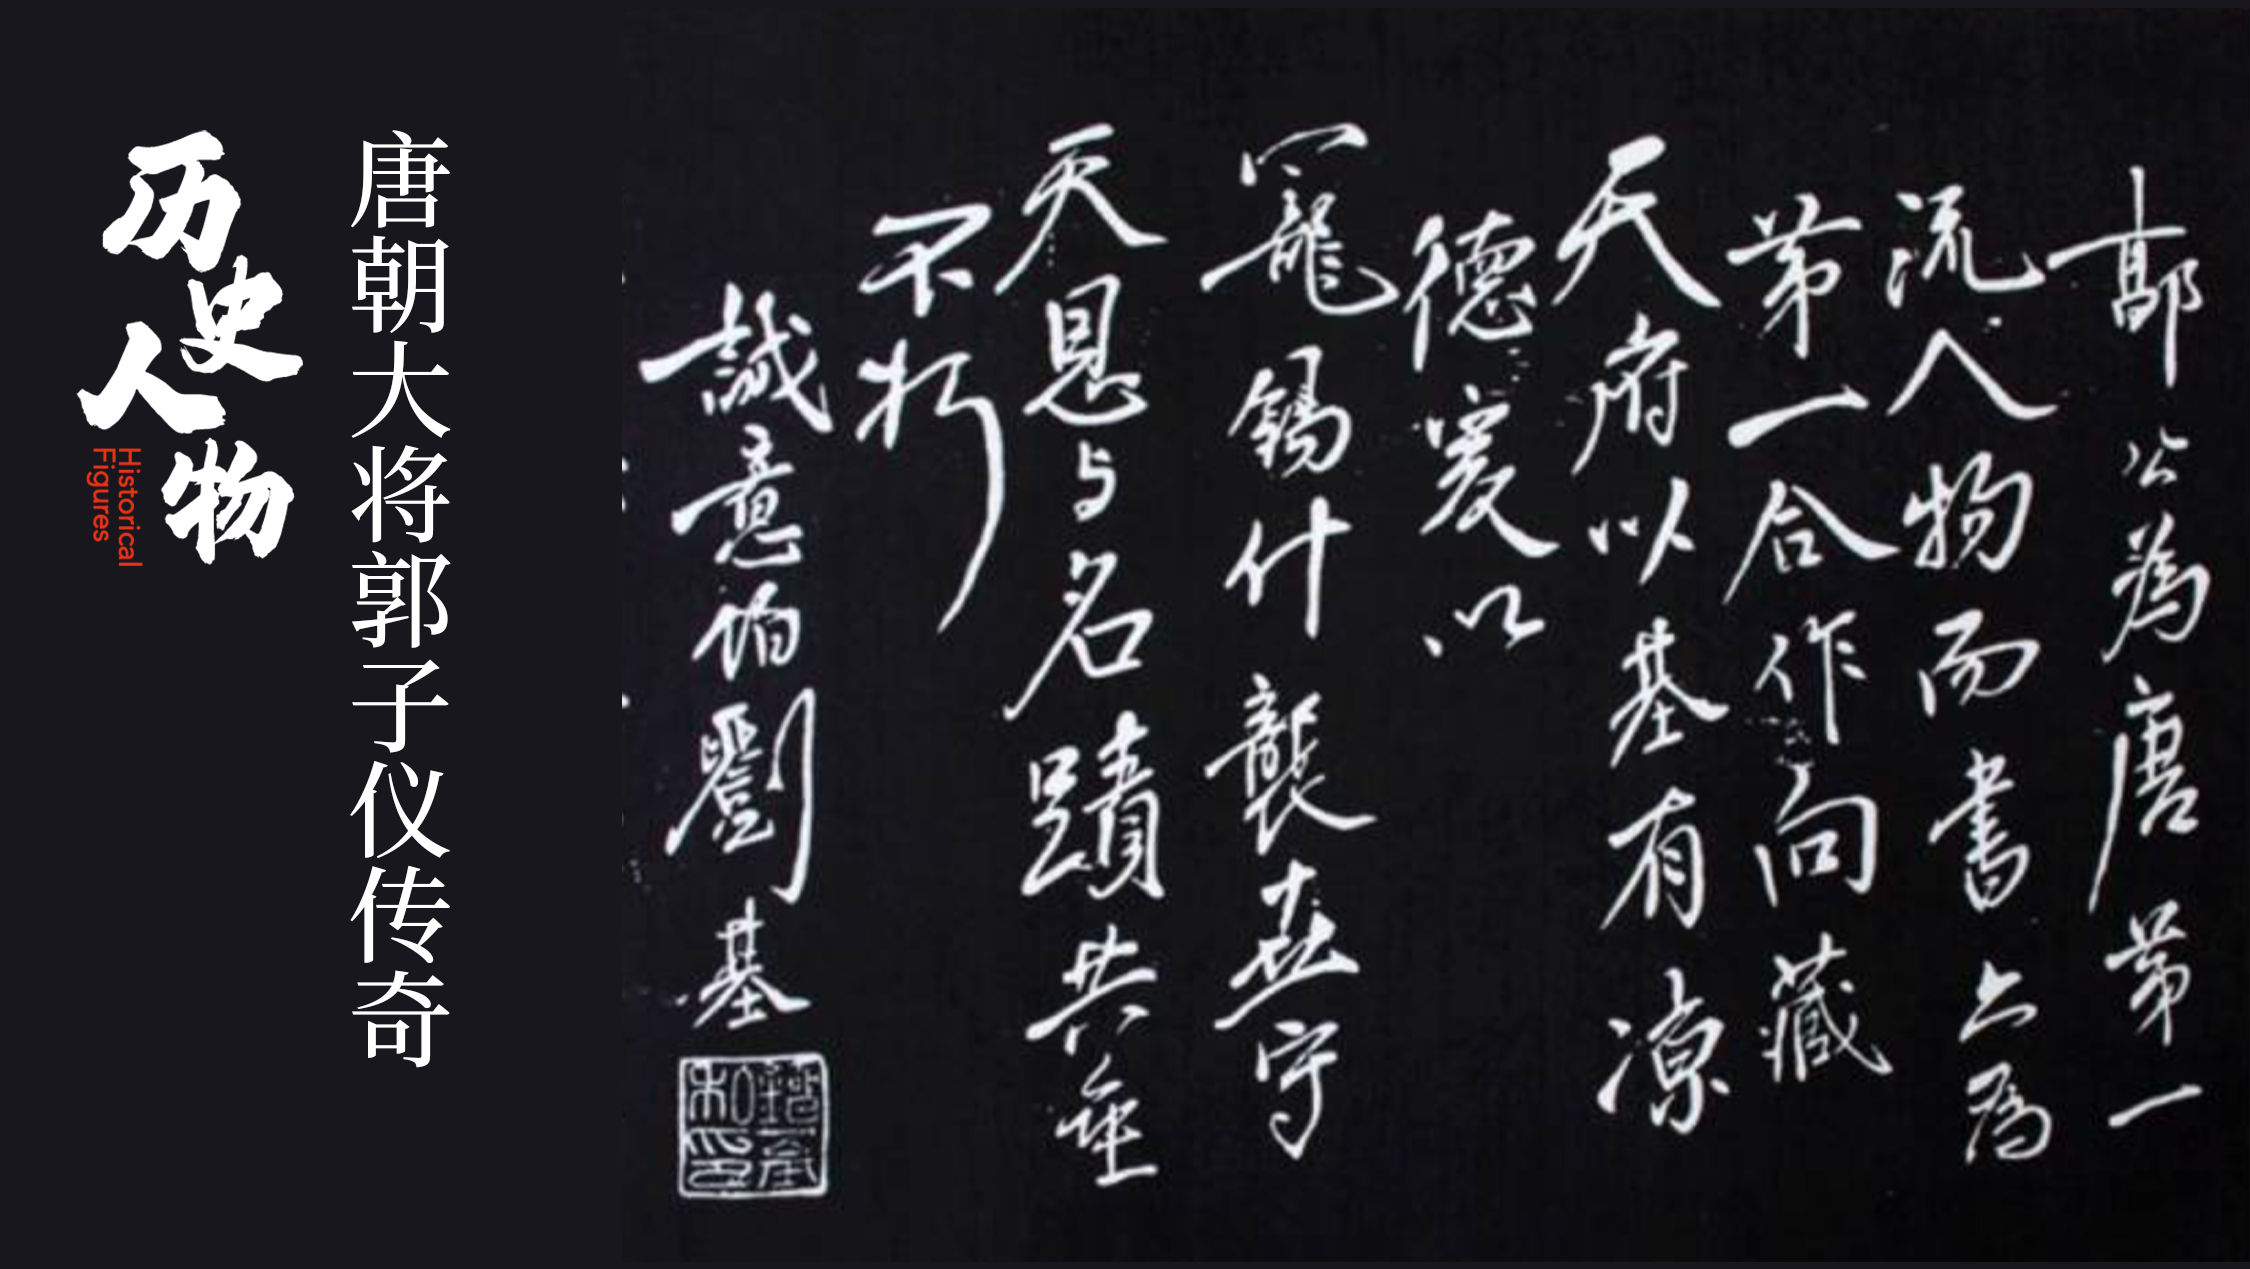 历史人物
Historical
Figures
唐朝大将郭子仪传奇
郭公為唐第一
流人物而書上為
第一合作向藏
天府以基有凉
德爰以
寵錫什襲世守
天恩与名蹟共垂
不朽
誠意伯劉基